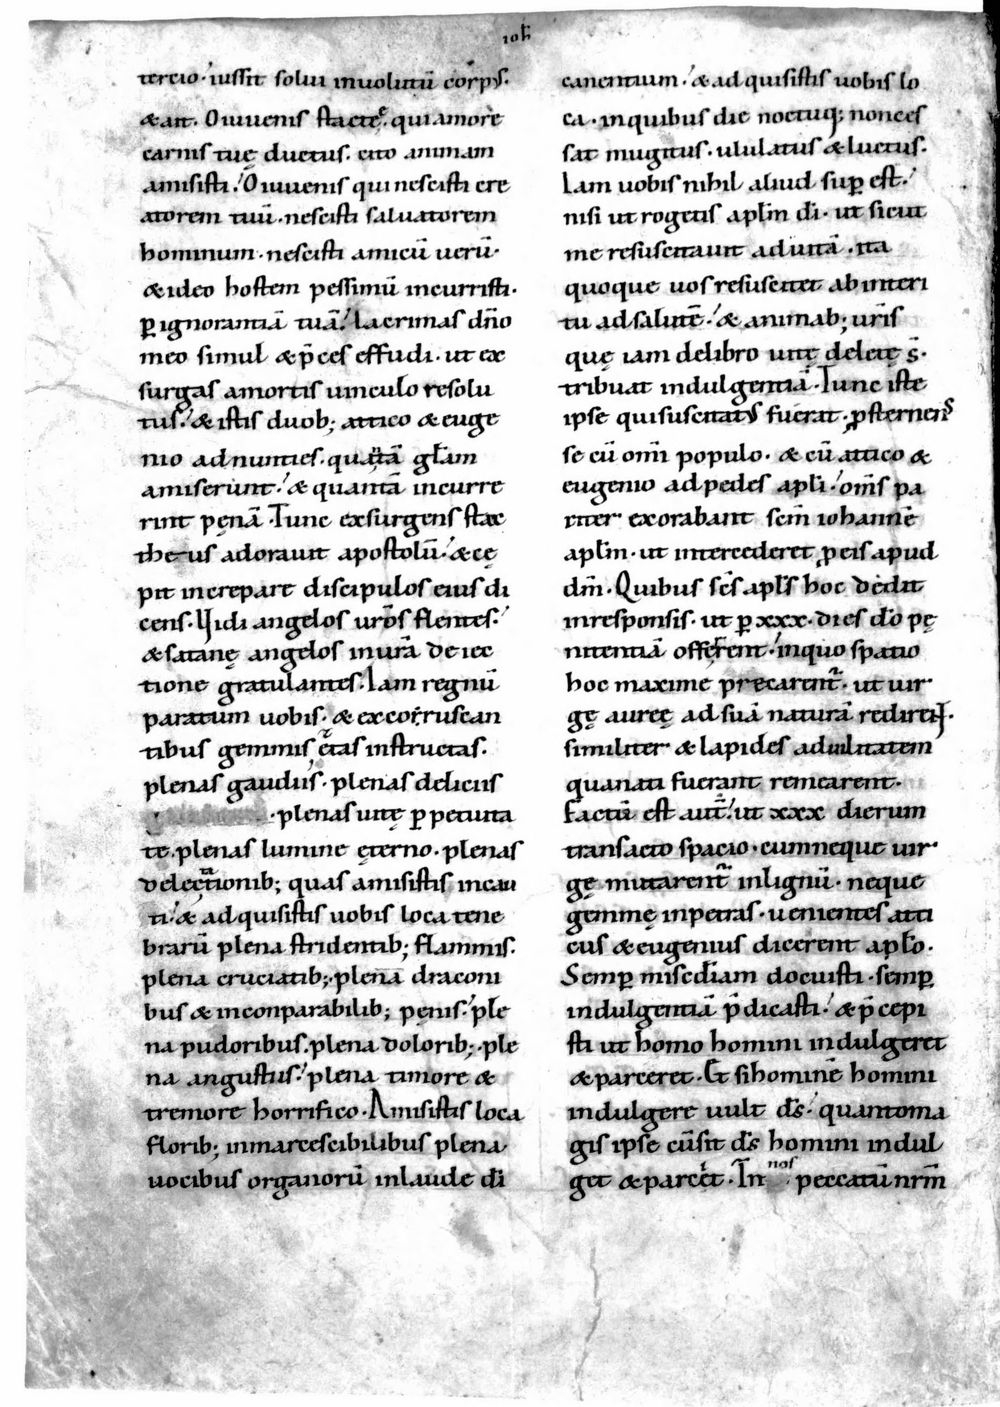 ioh̅
tercio · iussit solui inuolutū corpꝰ.
& ait. O iuuenis stacteᵉ. qui amore
carnis tuę ductus. cito animam
amisisti. O iuuenis qui nescisti cre
atorem tuū · nescisti saluatorem
hominum · nescisti amicū uerū ·
& ideo hostem pessimū incurristi ·
ꝑ ignorantiā tuā. lacrimas dn̄o
meo simul & p̄ces effudi · ut ex
surgas a mortis uinculo resolu
tus. & istis duob; attico & euge
nio adnunties. quātā gl̄am
amiserunt. & quantā incurre
rint pęnā. Tunc exsurgens stac
theus adorauit apostolū. & cę
pit increpare discipulos eius di
cens. Uidi angelos ur̄os flentes.
& satanę angelos in ur̄a deiec
tione gratulantes. Iam regnū
paratum uobis. & ex corruscan
tibus gemmis ętas instructas.
plenas gaudiis. plenas deliciis
· plenas uitę ꝑpetuita
te. plenas lumine ęterno. plenas
delectationib; quas amisistis incau
ti. & adquisistis uobis loca tene
brarū plena stridentib; flammis.
plena cruciatib; plena draconi
bus & inconparabilib; pęnis. ple
na pudoribus. plena dolorib; ple
na angustiis. plena timore &
tremore horrifico. Amisistis loca
florib; inmarcescibilibus plena
uocibus organorū in laude di̅
canentium. & adquisistis uobis lo
ca · in quibus die noctuq; non ces
sat mugitus · ululatus & luctus.
Iam uobis nihil aliud suꝑ est.
nisi ut rogetis apl̄m di̅ · ut sicut
me resuscitauit ad uitā · ita
quoque uos resuscitet ab interi
tu ad salutē. & animab; ur̄is
quę iam de libro uitę deletę s̄ ·
tribuat indulgentiā. Tunc iste
ipse qui suscitatꝰ fuerat · ꝓsternens
se cū om̄i populo · & cū attico &
eugenio ad pedes apl̄i. om̄s pa
riter exorabant sc̄m iohannē
apl̄m · ut intercederet ꝓ eis apud
dm̄. Quibus sc̄s apl̄s hoc dedit
in responsis · ut ꝑ xxx · dies dō pę
nitentiā offerrent. in quo spatio
hoc maxime precarent᷑ · ut uir
gę aureę ad suā naturā redirent ·
similiter & lapides ad uilitatem
qua nati fuerant remearent ·
Factū est aut̄. ut xxx dierum
transacto spacio · cumneque uir
gę mutarent᷑ in lignū · neque
gemmę in petras · uenientes atti
cus & eugenius dicerent apl̄o ·
Semꝑ misc̄diam docuisti · semꝑ
indulgentiā p̄dicasti. & p̄cepi
sti ut homo homini indulgeret
& parceret. Et si hominē homini
indulgere uult ds̄. quanto ma
gis ipse cū sit ds̄ homini indul
get & parcet. In nos peccatū nr̄m